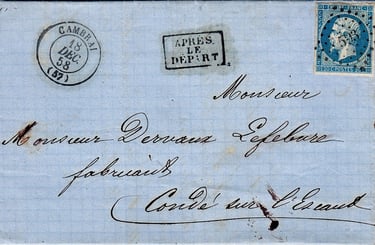 CAMBRAI
18
DEC.
58
(57)
APRÈS
LE
DÉPART
Monsieur
Monsieur Dervaux Lefebure
fabricant
Condé sur l'Escaut